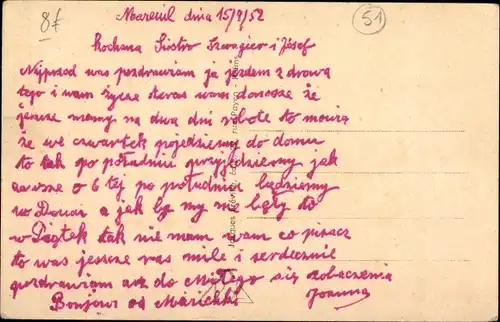 8f
51
Mareuil dnia 15/9/52
Kochana Siostro Szwagier i Józef
Najprzod was pozdrawiam ja jezdem zdrowa
tego i wam życze teras wam donosze że
jeszcze mamy na dwa dni robote to mowią
że we czwartek pojedziemy do domu
to tak po połudmiu przyjdziemy jak
zawsze o 6 tej po południu będziemy
w Douai a jak by my nie były to
w Piątek tak nie mam wam co pisacz
to was jeszcze ras mile i serdecznie
pozdrawiam asz do Miłego się zobaczenia
Bonjour od Marichki
Joanna